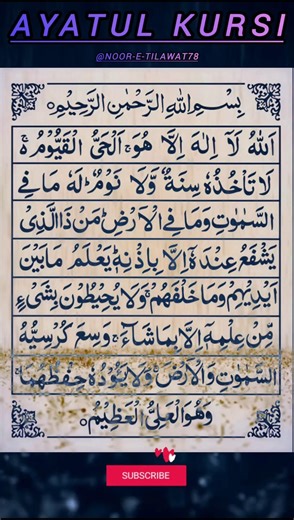 AYATUL KURSI
@NOOR-E-TILAWAT78
بِسْمِ اللهِ الرَّحْمٰنِ الرَّحِيْمِ
اَللهُ لَآ اِلٰهَ اِلَّا هُوَ ۚ اَلْحَىُّ الْقَيُّوْمُ ۚ
لَا تَاْخُذُهٗ سِنَةٌ وَّلَا نَوْمٌ ؕ لَهٗ مَا فِى
السَّمٰوٰتِ وَمَا فِى الْاَرْضِ ؕ مَنْ ذَا الَّذِىْ
يَشْفَعُ عِنْدَهٗٓ اِلَّا بِاِذْنِهٖ ؕ يَعْلَمُ مَا بَيْنَ
اَيْدِيْهِمْ وَمَا خَلْفَهُمْ ۚ وَلَا يُحِيْطُوْنَ بِشَىْءٍ
مِّنْ عِلْمِهٖٓ اِلَّا بِمَا شَآءَ ۚ وَسِعَ كُرْسِيُّهُ
السَّمٰوٰتِ وَالْاَرْضَ ۚ وَلَا يَـُٔوْدُهٗ حِفْظُهُمَا ۚ
وَهُوَ الْعَلِىُّ الْعَظِيْمُ
SUBSCRIBE